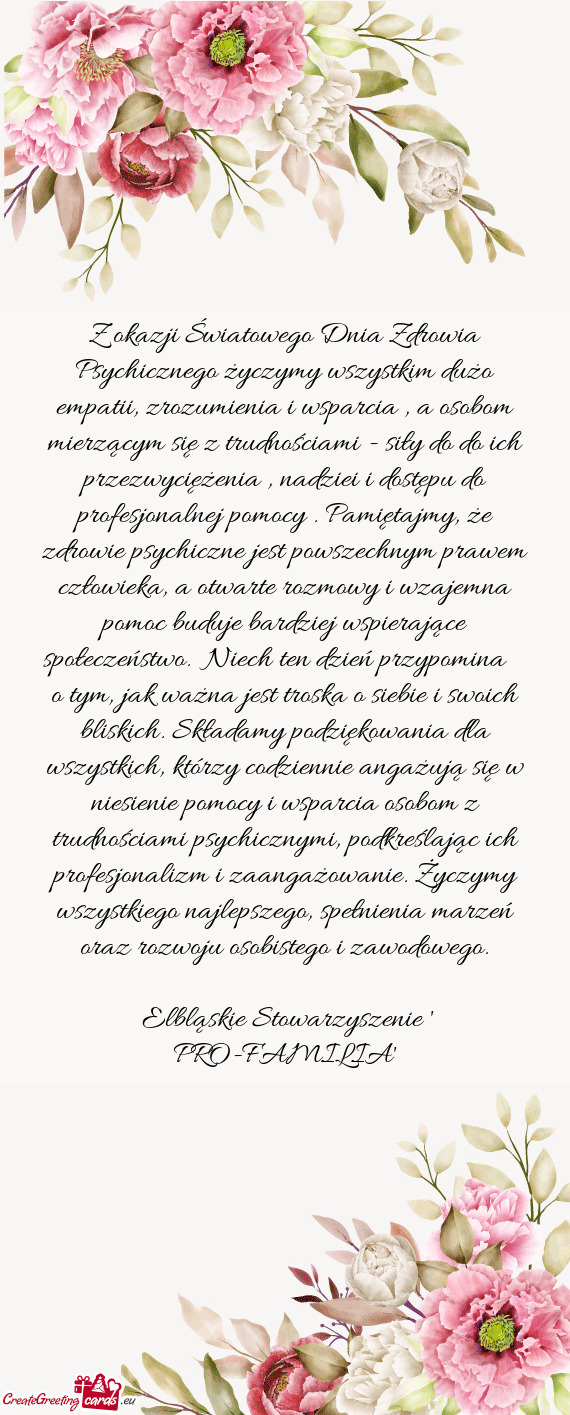 Z okazji Światowego Dnia Zdrowia
Psychicznego życzymy wszystkim dużo
empatii, zrozumienia i wsparcia , a osobom
mierzącym się z trudnościami - siły do do ich
przezwyciężenia , nadziei i dostępu do
profesjonalnej pomocy . Pamiętajmy, że
zdrowie psychiczne jest powszechnym prawem
człowieka, a otwarte rozmowy i wzajemna
pomoc buduje bardziej wspierające
społeczeństwo. Niech ten dzień przypomina
o tym, jak ważna jest troska o siebie i swoich
bliskich. Składamy podziękowania dla
wszystkich, którzy codziennie angażują się w
niesienie pomocy i wsparcia osobom z
trudnościami psychicznymi, podkreślając ich
profesjonalizm i zaangażowanie. Życzymy
wszystkiego najlepszego, spełnienia marzeń
oraz rozwoju osobistego i zawodowego.
Elbląskie Stowarzyszenie '
PRO-FAMILIA'
CreateGreeting cards .eu